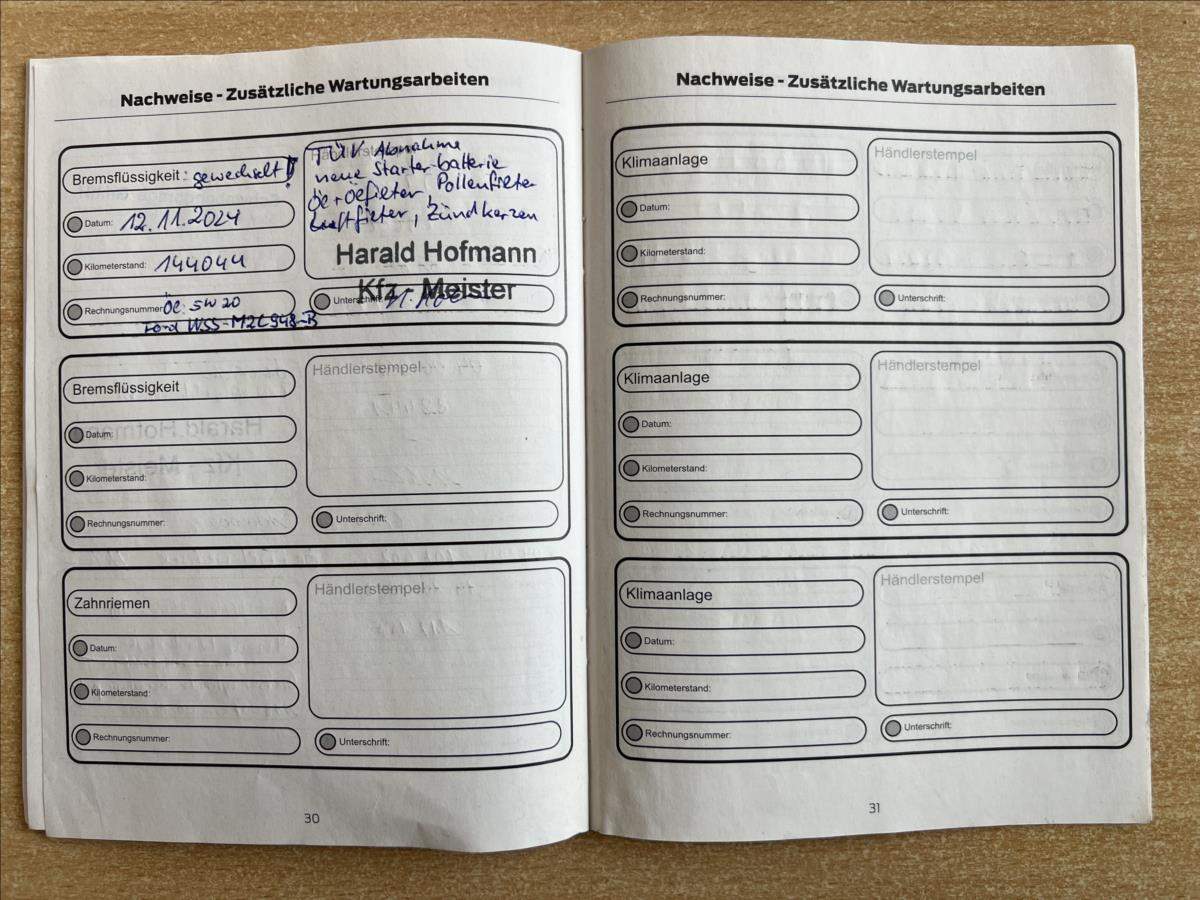 Nachweise - Zusätzliche Wartungsarbeiten
Bremsflüssigkeit : gewechselt!
Datum: 12.11.2024
Kilometerstand: 144044
Rechnungsnummer Öl: 5W20
Ford WSS-M2C948-B
Händlerstempel
TÜV Abnahme
neue Starterbatterie
Öl + Ölfilter, Pollenfilter
Luftfilter, Zündkerzen
Harald Hofmann
Kfz - Meister
Unterschrift:
Bremsflüssigkeit
Datum:
Kilometerstand:
Rechnungsnummer:
Händlerstempel
Unterschrift:
Zahnriemen
Datum:
Kilometerstand:
Rechnungsnummer:
Händlerstempel
Unterschrift:
30
Nachweise - Zusätzliche Wartungsarbeiten
Klimaanlage
Datum:
Kilometerstand:
Rechnungsnummer:
Händlerstempel
Unterschrift:
Klimaanlage
Datum:
Kilometerstand:
Rechnungsnummer:
Händlerstempel
Unterschrift:
Klimaanlage
Datum:
Kilometerstand:
Rechnungsnummer:
Händlerstempel
Unterschrift:
31